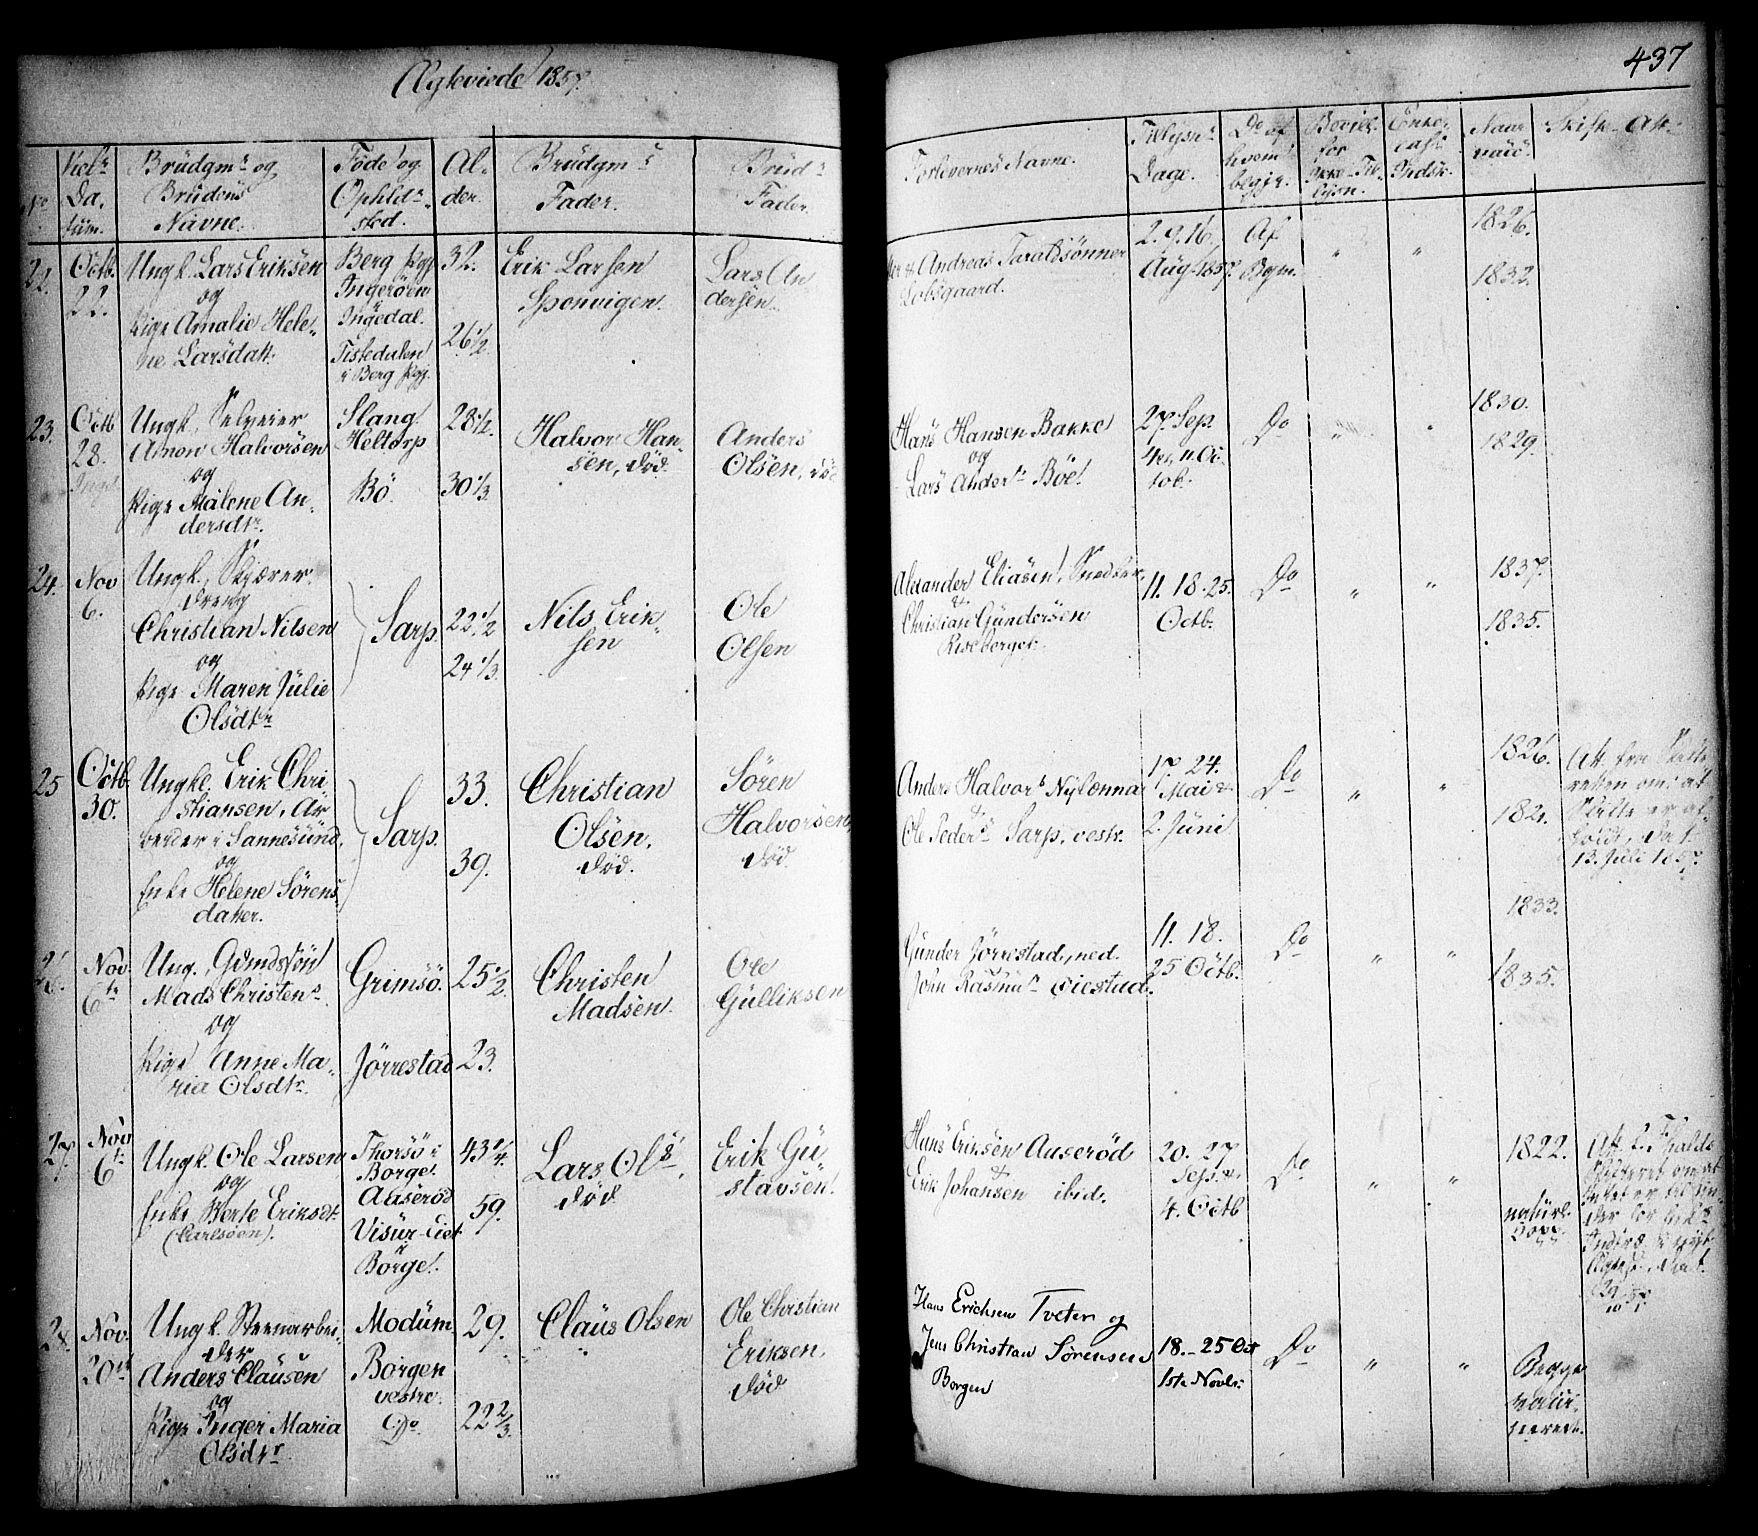 437
Ægteviede 1857.
No
Viels
Da,
tüm.
Brüdgms og
Brüdens
Navne.
Föde og
Ophlds
sted.
Al-
der.
Brüdgms
Fader.
Brüds
Fader.
Forlovernes Navne.
Tillysns
Dage.
Do af
hvem
begjr.
Bevill.
for
Enke,
cass.
Indsk.
Naar
vacc.
Skifte-Att.
22.
Octb.
22.
Ungk. Lars Eriksen
og
Pige Amalie Hele,
ne Larsdatt.
Berg Pgj.
Ingeröen
Ingedal.
Tistedalen
i Berg Pgj.
32.
26 1/2
Erik Larsen
Sponvigen.
Lars An
dersen.
Andreas Taraldsönner
Lobsgaard.
2. 9. 16.
Aug. 1857.
Af
Bgm.
"
"
1826.
1832.
23.
Octb
28.
Ungk. Selveier
Amon Halvorsen
og
Pige Malene An,
dersdtr.
Slang
Heltorp
Bö.
28 1/2.
30 1/3.
Halvor Han,
sen, död.
Anders
Olsen, död
Hans Hansen Bakke
og
Lars Anders Böe
27. Sep.
4de, 11. Oc,
tob.
Do
"
"
1830.
1829.
24.
Nov
6.
Ungk., Skjærer
dreng
Christian Nilsen
og
Pige Maren Jülie
Olsdtr
Sarp
22 1/2
24 1/3.
Nils Erik,
sen
Ole
Olsen
Alexander Eliasen, Snedker,
&
Christian Gündersen
Riseberget.
11. 18. 25.
Octb.
Do
"
"
1837.
1835.
25
Octb.
30.
Ungk. Erik Chri,
stiansen, Ar
beider i Sannesünd,
og
Enke Helene Sörens,
datter.
Sarp.
33.
39.
Christian
Olsen,
död.
Sören
Halvorsen,
död.
Anders Halvors Nylænna
&
Ole Peders Sarp, vestr.
17. 24.
Mai &
2. Jüni
Do
"
"
1826.
1821.
Att. fra Skifte,
retten om at
Skifte er af,
holdt, dat.
13. Juli 1857.
26.
Nov.
6te
Ung., Gmdssön
Mads Christens
og
Pige Anne Ma,
ria Olsdtr.
Grimsö.
Jörrestad
25 1/2.
23.
Christen
Madsen.
Ole
Gülliksen
Günder Jörrestad, ned.
John Rasmus Eiestad.
11. 18.
25 Octb.
Do
"
"
1833.
1835.
27.
Nov
6te
Ungk. Ole Larsen
og
Enke Berte Eriksdt.
(Carlsöen).
Thorsö i
Borge.
Aaseröd
Visür-Eiet
i
Borge.
43 1/4.
59.
Lars Ols,
död
Erik Gü
stavsen.
Hans Eriksen Aaseröd
&
Erik Johansen ibid.
20. 27
Sept. &
4. Octb
Do.
"
"
1822.
natürl.
Kopp.
28.
Nov.
20de
Ungk. Steenarbei,
der
Anders Claüsen
og
Pige Inger Maria
Olsdtr
Modüm.
Borgen
vestre.
Do.
29.
22 2/3.
Claüs Olsen
Ole Christian
Eriksen,
död
Hans Erichsen Tveter og
Jens Christian Sörensen
Borgen
18. - 25 Oct
1ste Novbr.
Do
"
"
Begge